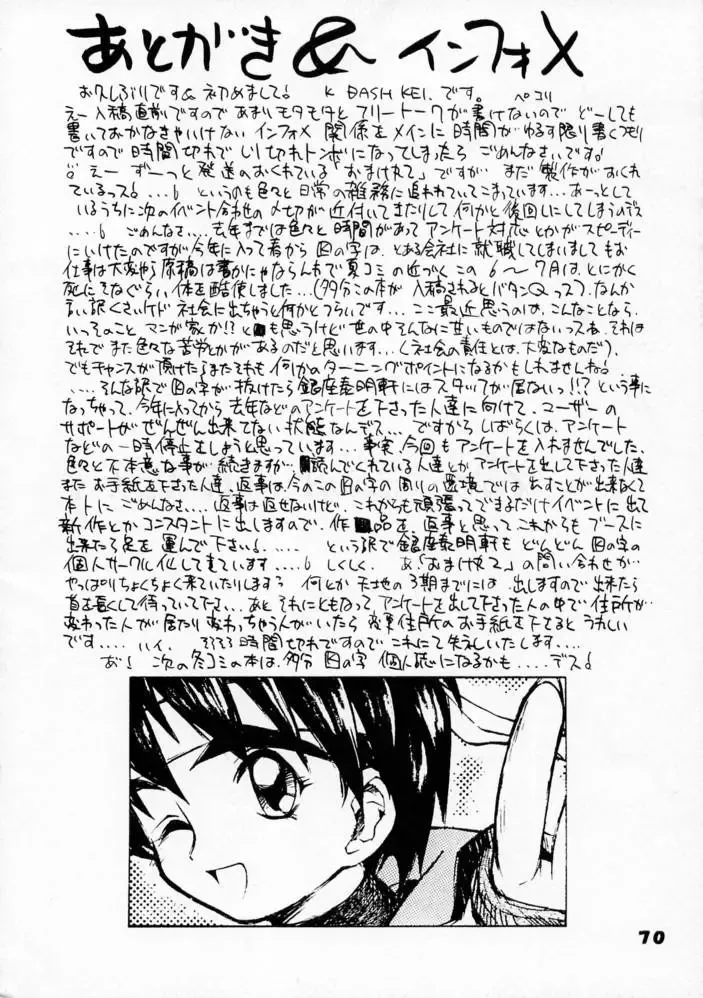 あとがき & インフォメ
お久しぶりです&初めまして! K DASH KEI.です。 ペコリ
えー入稿直前ですので あまりモタモタと フリートークが書けないので どーしても
書いておかなきゃいけない インフォメ 関係をメインに 時間が ゆるす限り書くつもり
ですので 時間切れで しり切れトンボになってしまったら ごめんなさいです!
えーずーっと発送のおくれている「おまけ丸て」ですが まだ製作がおくれ
ているっス!...。 というのも色々と 日常の雑務に追われていてこまっています...あーっとして
いるうちに次のイベント合わせの〆切が近付いてきたりして 何かと後回しにしてしまうのデス
....。ごめんなさい...去年までは色々と 時間があって アンケート対応とかがスピーディー
にいけたのですが今年に入って春から 図の字は、とある会社に就職してしまいましてもお
仕事は大変やら 原稿は書かにゃならんわで 夏コミの近づくこの 6~7月は、とにかく
死にそなぐらい 体を酷使しました...(多分この本が 入稿されるとバタンQっス)、なんか
言い訳くさいけど 社会に出ちゃうと何かとつらいです... ここ最近思うのは、こんなことなら、
いっそのこと マンガ家か!? とも思うけど 世の中そんなに甘いものではないっスね、それは
それで また色々な苦労とかが あるのだと思います...(社会の責任とは、大変なものだ)、
でもチャンスが頂けたら またそれも 何かのターニングポイントになるかもしれませんね!
....そんな訳で図の字が 抜けたら 銀座泰明軒にはスタッフが居ないっ!!? という事に
なっちゃって、今年に入ってから 去年などのアンケートを下さった人達に向けて、ユーザーの
サポートが ぜんぜん出来てない 状態なんデス... ですから しばらくは、アンケート
などの 一時停止をしようと思っています...事実、今回もアンケートを入れませんでした、
色々と不本意な事が 続きますが、読んでくれている人達とか、アンケートを出して下さった人達
また お手紙を下さった人達、返事は、今のこの図の字の 周りの環境では 出すことが出来なくて
本トに ごめんなさい... 返事は返せないけど、これからも頑張って できるだけイベントに出て
新作とか コンスタントに出しますので、作品を、返事と思って これからも ブースに
出来たら足を 運んで下さい!..... という訳で 銀座泰明軒も どんどん 図の字の
個人サークル化して来ています....。しくしく、 あ、「おまけ丸て」の問い合わせが
やっぱりちょくちょく来ていたりします? 何とか 天地の3期までには 出しますので出来たら
首を長くして待っていて下さい... あと それにともなって アンケートを出して下さった人の中で 住所が
変わった人が居たり 変わっちゃう人がいたら 変更住所のお手紙を下さると うれしい
です.... ハイ、 そろそろ時間切れですので これにて失礼いたします....
あ! 次の冬コミの本は、多分 図の字 個人誌になるかも....デス!
70